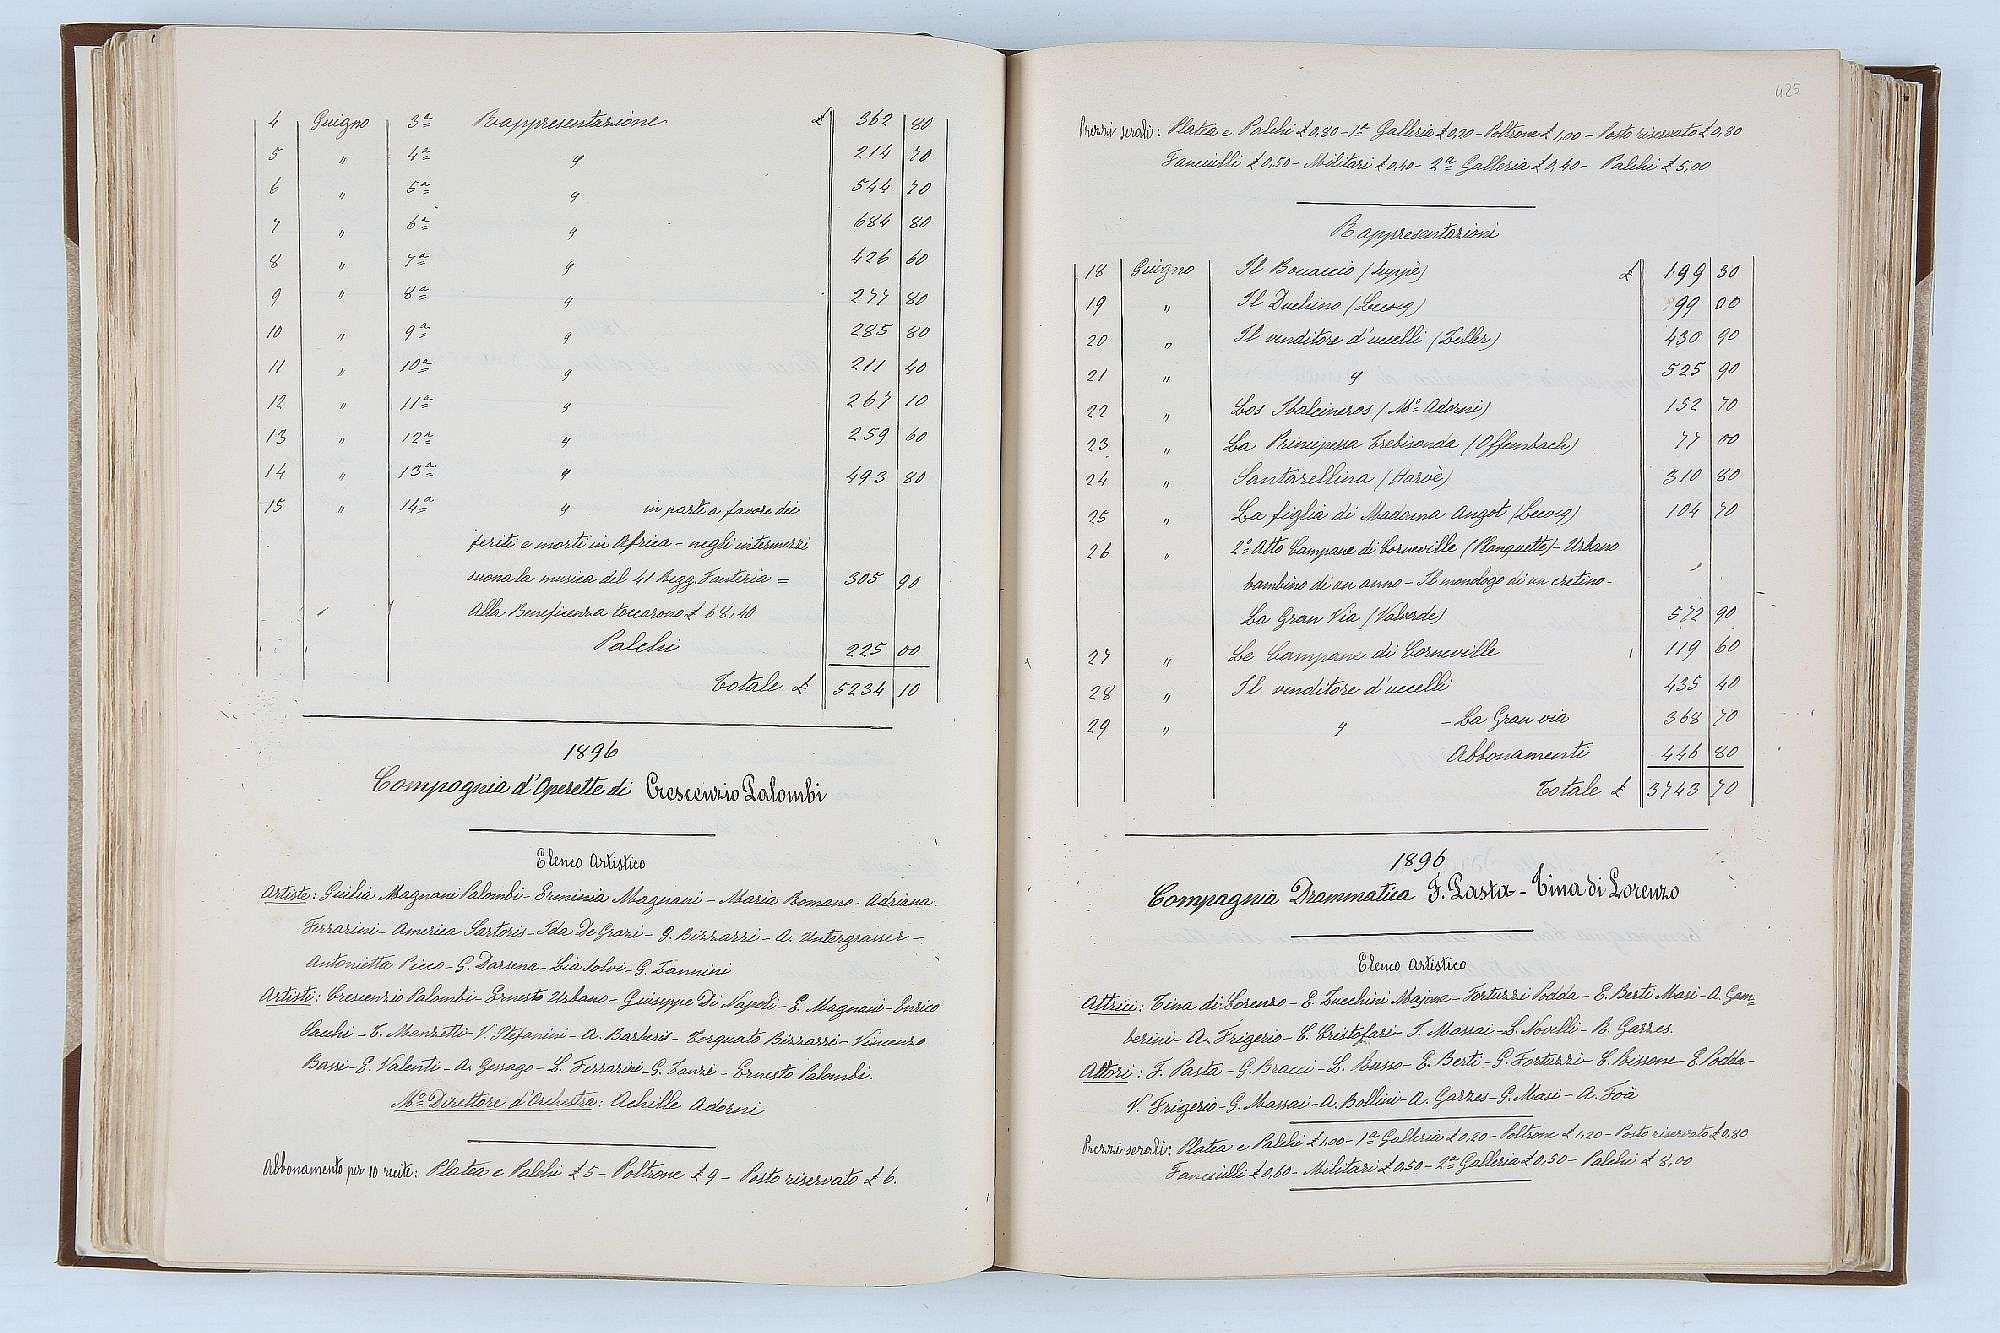 4 Guigno 3ª Rappresentazione £ 362 80
5 " 4ª " 214 70
6 " 5ª " 544 70
7 " 6ª " 684 80
8 " 7ª " 426 60
9 " 8ª " 277 80
10 " 9ª " 285 80
11 " 10ª " 211 40
12 " 11ª " 267 10
13 " 12ª " 259 60
14 " 13ª " 493 80
15 " 14ª " in parte a favore dei
feriti e morti in Africa - negli intermezzi
suona la musica del 41 Regg. Fanteria = 305 90
Alla Beneficenza toccarono £ 68,40
Palchi 225 00
Totale £ 5234 10
1896
Compagnia d'Operette di Crescenzio Palombi
Elenco Artistico
Artiste: Guilia Magnani Palombi - Erminia Magnani - Maria Romano - Adriana
Ferrarini - America Sartoris - Ida De Grazi - G. Bizzarri - A. Untergrasser -
Antonietta Picco - G. Darsena - Lia Solvi - G. Zannini
Artisti: Crescenzio Palombi - Ernesto Urbano - Guiseppe Di Napoli - E. Magnani - Enrico
Sacchi - E. Manzetti - V. Stefanini - A. Barberis - Torquato Bizzarri - Vincenzo
Bassi - E. Valenti - A. Gessago - L. Ferrarini - G. Fanzi - Ernesto Palombi.
Mº Direttore d'Orchestra: Achille Adorni
Abbonamento per 10 recite: Platea e Palchi £ 5 - Poltrone £ 9 - Posto riservato £ 6.
425
Prezzi serali: Platea e Palchi £ 0,80 - 1ª Galleria £ 0,20 - Poltrone £ 1,00 - Posto riservato £ 0,80
Fanciulli £ 0,50 - Militari £ 0,40 - 2ª Galleria £ 0,40 - Palchi £ 5,00
Rappresentazioni
18 Guigno Il Bocaccio (Suppè) £ 199 30
19 " Il Duchino (Lecocq) 99 00
20 " Il venditore d'uccelli (Zeller) 430 90
21 " " 525 90
22 " Los (Mº Adorni) 152 70
23 " La Principessa Trebisonda (Offembach) 77 00
24 " Santarellina (Harvè) 310 80
25 " La figlia di Madama Angot (Lecocq) 104 70
26 " 2º Atto Campane di Corneville (Planquette) - Urbano
bambino di un anno - Il monologo di un cretino -
La Gran Via (Valverde) 572 90
27 " Le Campane di Corneville 119 60
28 " Il venditore d'uccelli 435 40
29 " " - La Gran via 368 70
Abbonamenti 446 80
Totale £ 3743 70
1896
Compagnia Drammatica F. Pasta - Tina di Lorenzo
Elenco Artistico
Attrici: Tina di Lorenzo - E. Zucchini Majone - Fortuzzi Podda - E. Berti Masi - A. Gam-
berini - A. Frigerio - C. Cristofari - T. Massai - L. Novelli - R. Garzes.
Attori: F. Pasta - G. Bracci - L. Russo - E. Berti - G. Fortuzzi - E. Rissone - E. Podda -
V. Frigerio - G. Massai - A. Bollini - A. Garzes - G. Masi - A. Foà
Prezzi serali: Platea e Palchi £ 1,00 - 1ª Galleria £ 0,20 - Poltrone £ 1,20 - Posto riservato £ 0,80
Fanciulli £ 0,60 - Militari £ 0,50 - 2ª Galleria £ 0,50 - Palchi £ 8,00